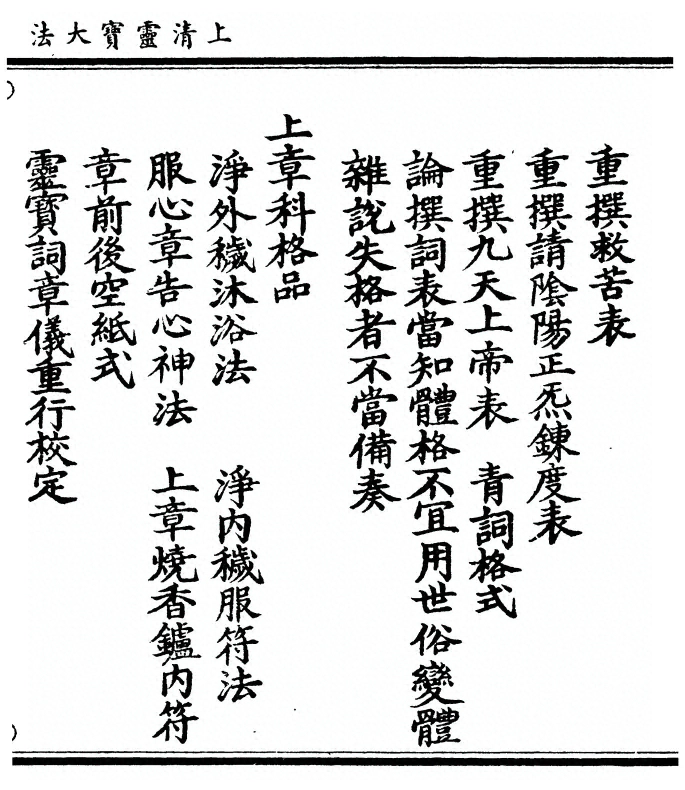 上清靈寶大法
重撰救苦表
重撰請陰陽正炁鍊度表
重撰九天上帝表　青詞格式
論撰詞表當知體格不宜用世俗變體
雜說失格者不當備奏
上章科格品
淨外穢沐浴法　淨內穢服符法
服心章告心神法　上章燒香鑪內符
章前後空紙式
靈寶詞章儀重行校定